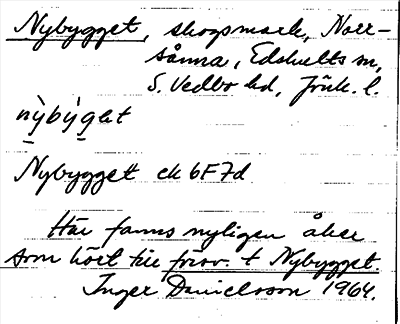 Nybygget, skogsmark, Norr-
sånna, Edshults sn,
S. Vedbo hd, Jönk. l.
nỳbýgət
Nybygget ek 6F7d
Här fanns nyligen åker
som hört till förv. t Nybygget.
Inger Danielsson 1964.